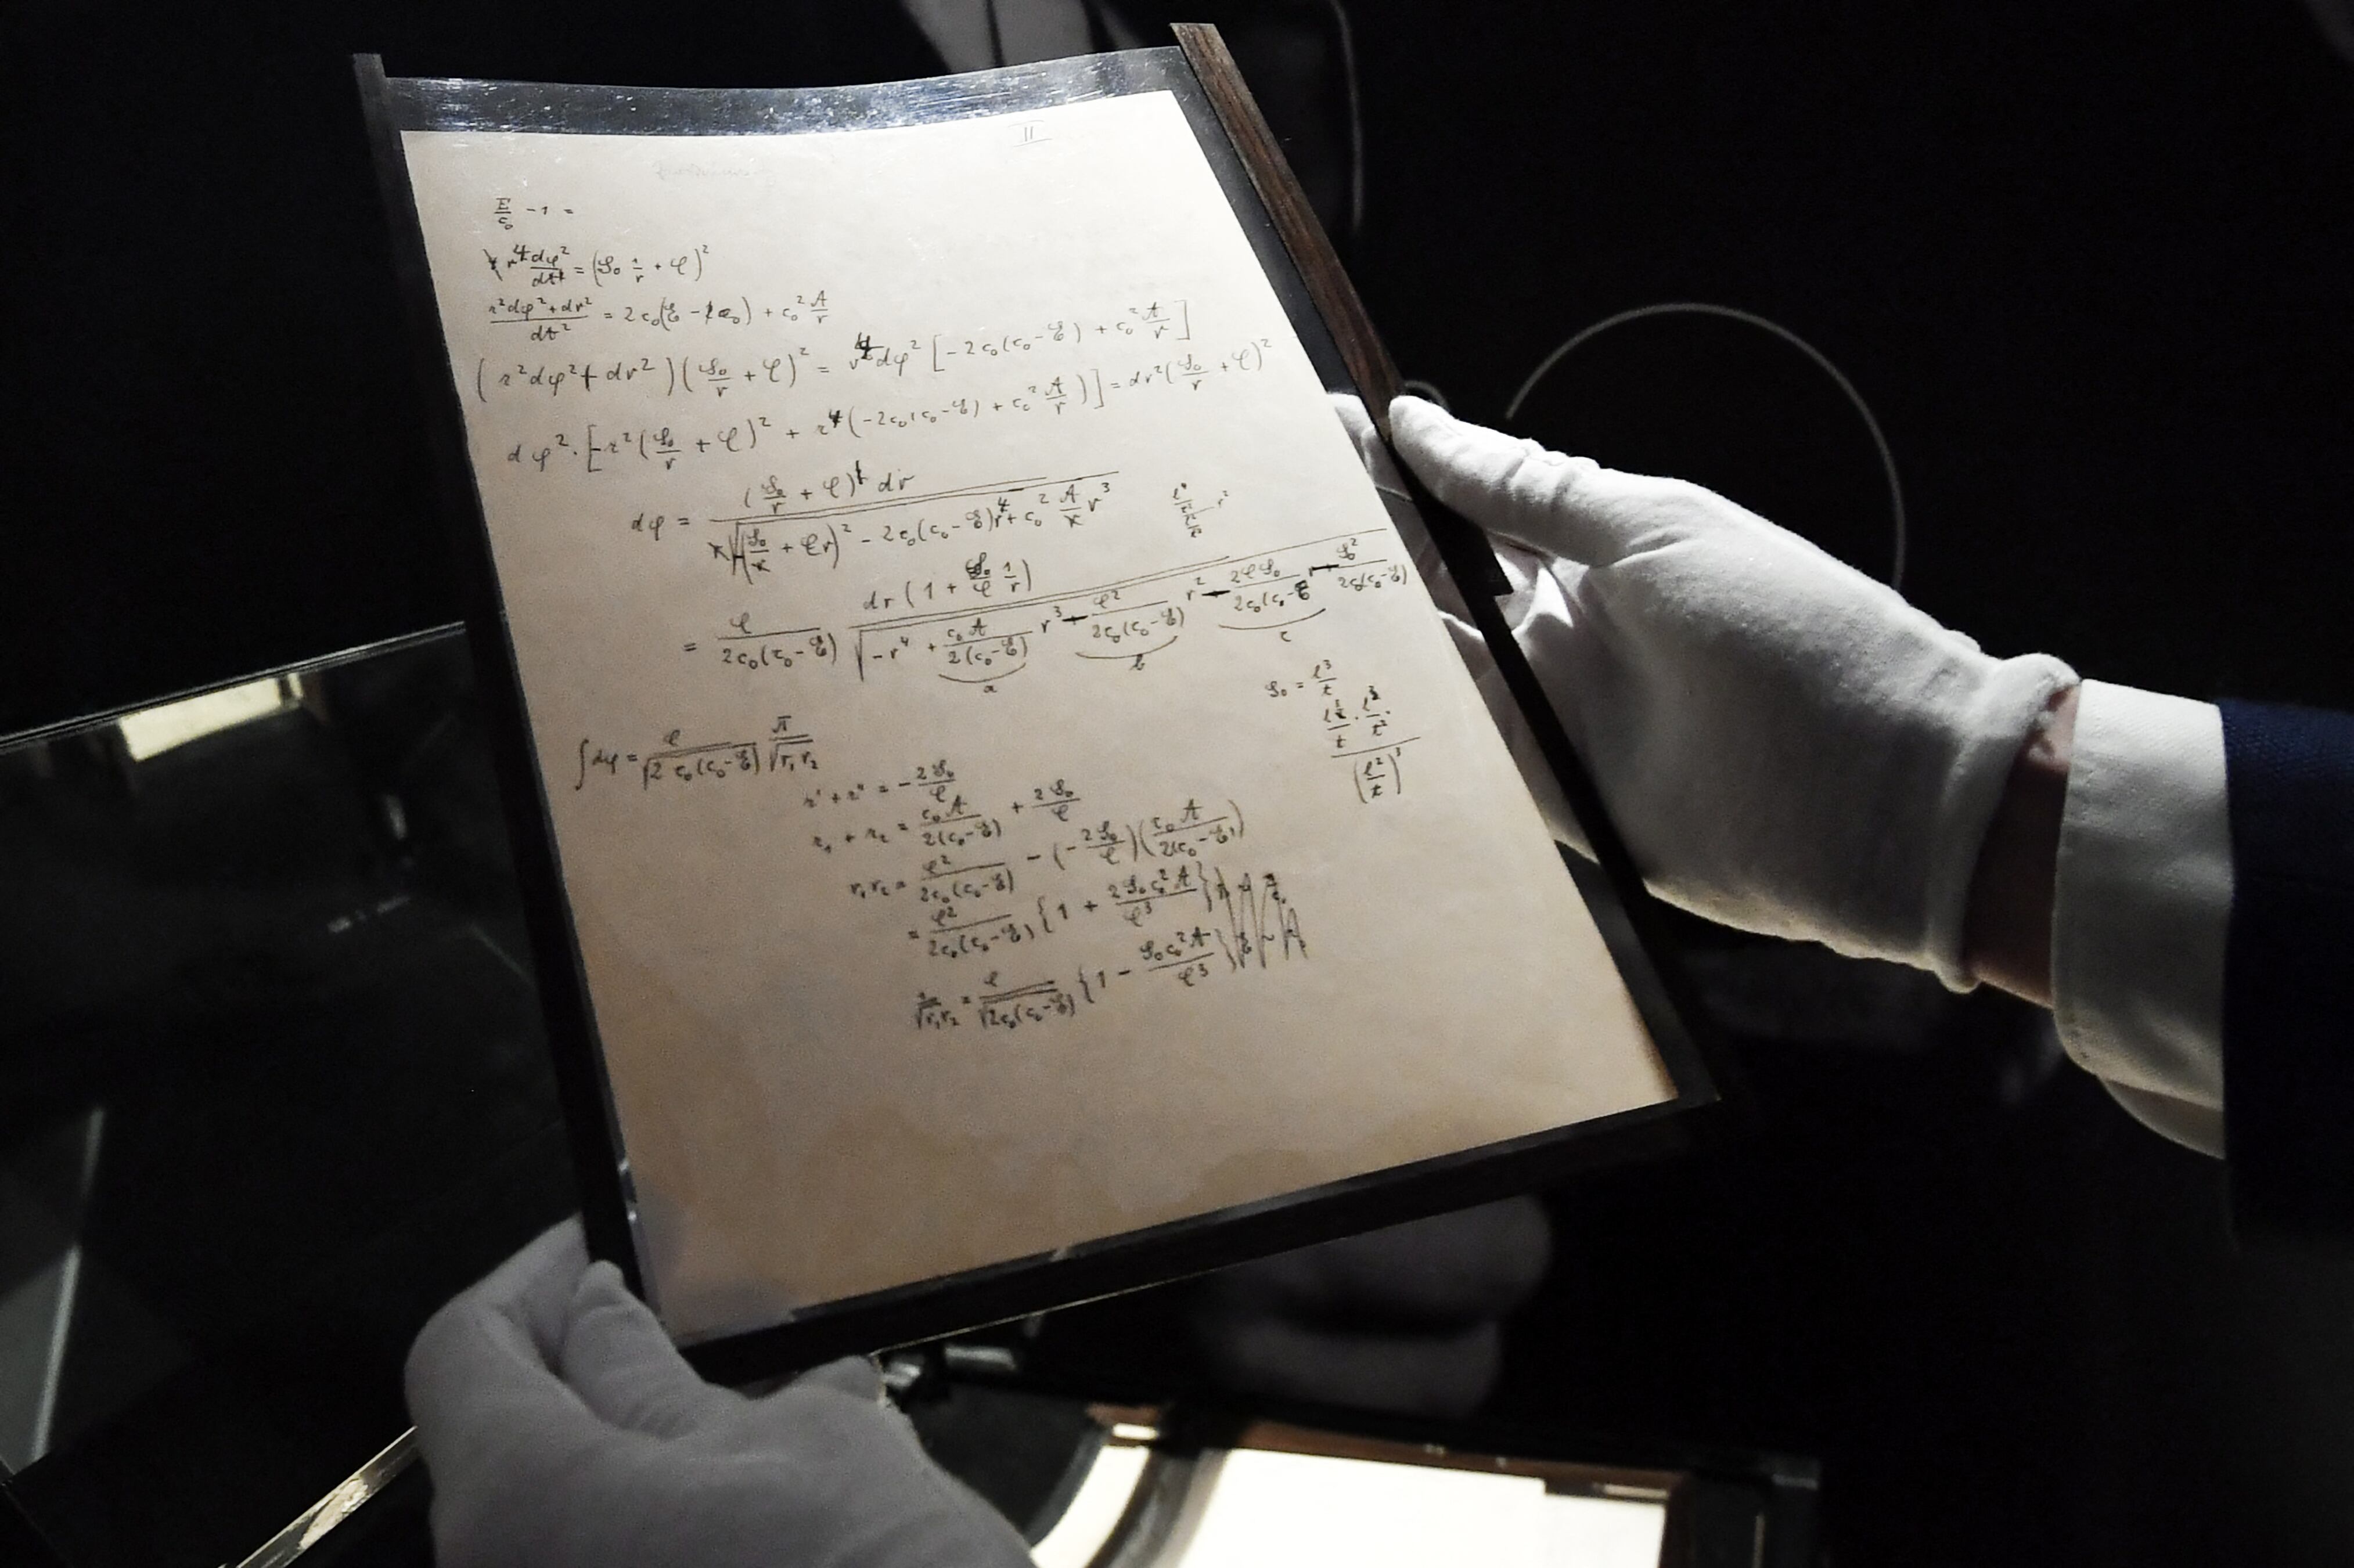 11
E/c₀ − 1 =
r⁴ dφ²/dt² = (𝒮₀ 1/r + 𝒞)²
(r²dφ² + dr²)/dt² = 2c₀(ℰ − c₀) + c₀² A/r
(r²dφ² + dr²)(𝒮₀/r + 𝒞)² = r⁴dφ² [−2c₀(c₀−ℰ) + c₀² A/r]
dφ² · [−r²(𝒮₀/r + 𝒞)² + r⁴(−2c₀(c₀−ℰ) + c₀² A/r)] = dr²(𝒮₀/r + 𝒞)²
dφ = (𝒮₀/r + 𝒞) dr / √((𝒮₀ + 𝒞r)² − 2c₀(c₀−ℰ)r⁴ + c₀² A r³)
= 𝒞/(2c₀(c₀−ℰ)) dr(1 + 𝒮₀/𝒞 1/r) / √(−r⁴ + c₀A/(2(c₀−ℰ)) r³ − 𝒞²/(2c₀(c₀−ℰ)) r² − 2𝒞𝒮₀/(2c₀(c₀−ℰ)) r − 𝒮₀²/(2c₀(c₀−ℰ)))
a b c
𝒮₀ = l³/t
(l³/t · l³/t²) / (l²/t)³
∫dφ = 𝒞/√(2c₀(c₀−ℰ)) π/√(r₁r₂)
r' + r'' = −2𝒮₀/𝒞
r₁ + r₂ = c₀A/(2(c₀−ℰ)) + 2𝒮₀/𝒞
r₁r₂ = 𝒞²/(2c₀(c₀−ℰ)) − (−2𝒮₀/𝒞)(c₀A/(2(c₀−ℰ)))
= 𝒞²/(2c₀(c₀−ℰ)) {1 + 2𝒮₀c₀²A/𝒞³}
1/√(r₁r₂) = 𝒞/√(2c₀(c₀−ℰ)) {1 − 𝒮₀c₀²A/𝒞³}